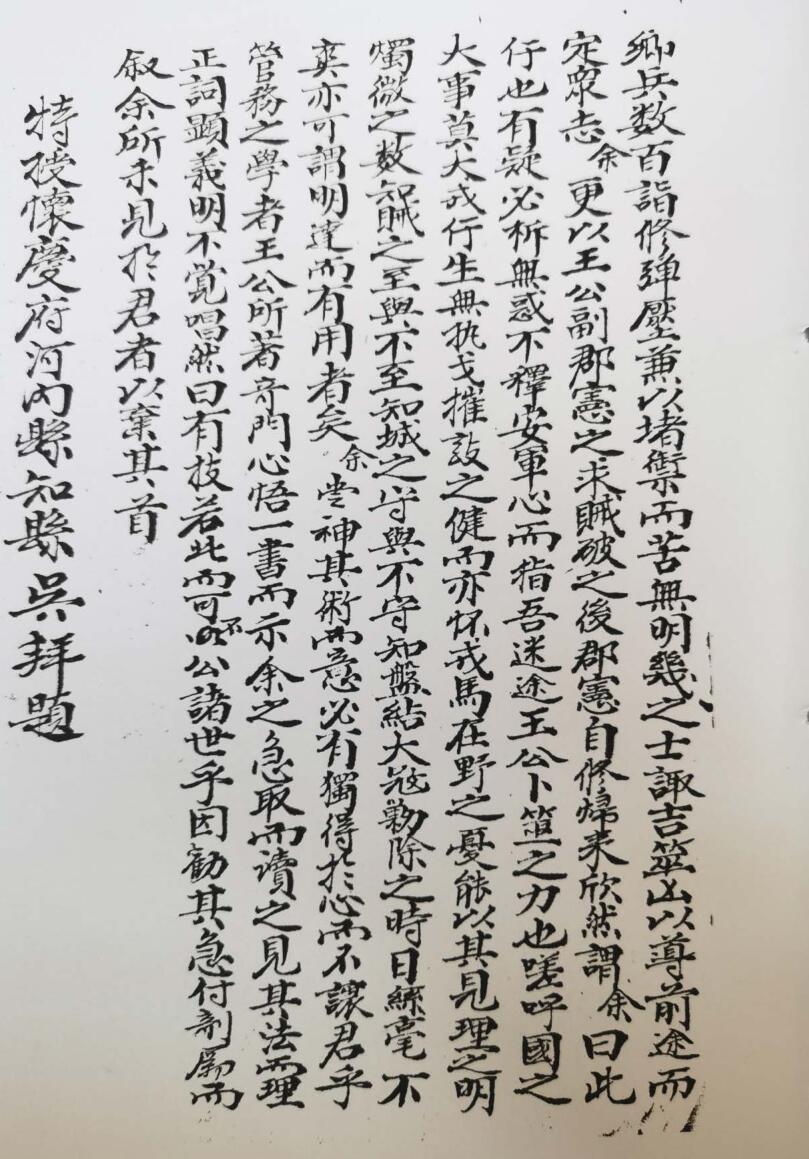 鄉兵数百詣修弹壓兼以堵禦而苦無明幾之士諏吉筮凶以導前途而
定衆志余更以王公副郡憲之求賊破之後郡憲自修歸来欣然謂余曰此
仔也有疑必析無惑不釋安軍心而指吾迷途王公卜筮之力也嗟呼國之
大事莫大戎行生無执戈摧敌之健而亦怀戎馬在野之憂能以其見理之明
燭微之数知賊之至與不至知城之守與不守知盤結大寇勦除之時日絲毫不
爽亦可謂明達而有用者矣余甞神其術而意必有獨得於心而不讓君乎
管務之學者王公所著奇門心悟一書而示余之急取而讀之見其法而理
正詞顕義明不覚喟然曰有技若此而可不公諸世乎因勸其急付剞劂而
叙余所未見於君者以棄其首
特授懷慶府河内縣知縣吳拜題